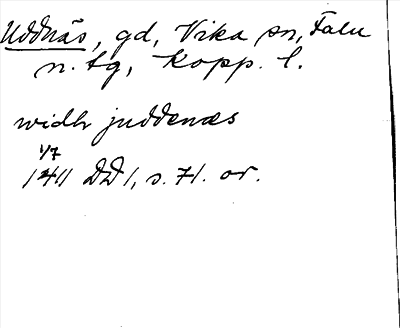 Uddnäs, gd, Vika sn, Falu
n. tg, Kopp. l.
widh juddenæs
1/7
1411 DD 1, s. 71. or.